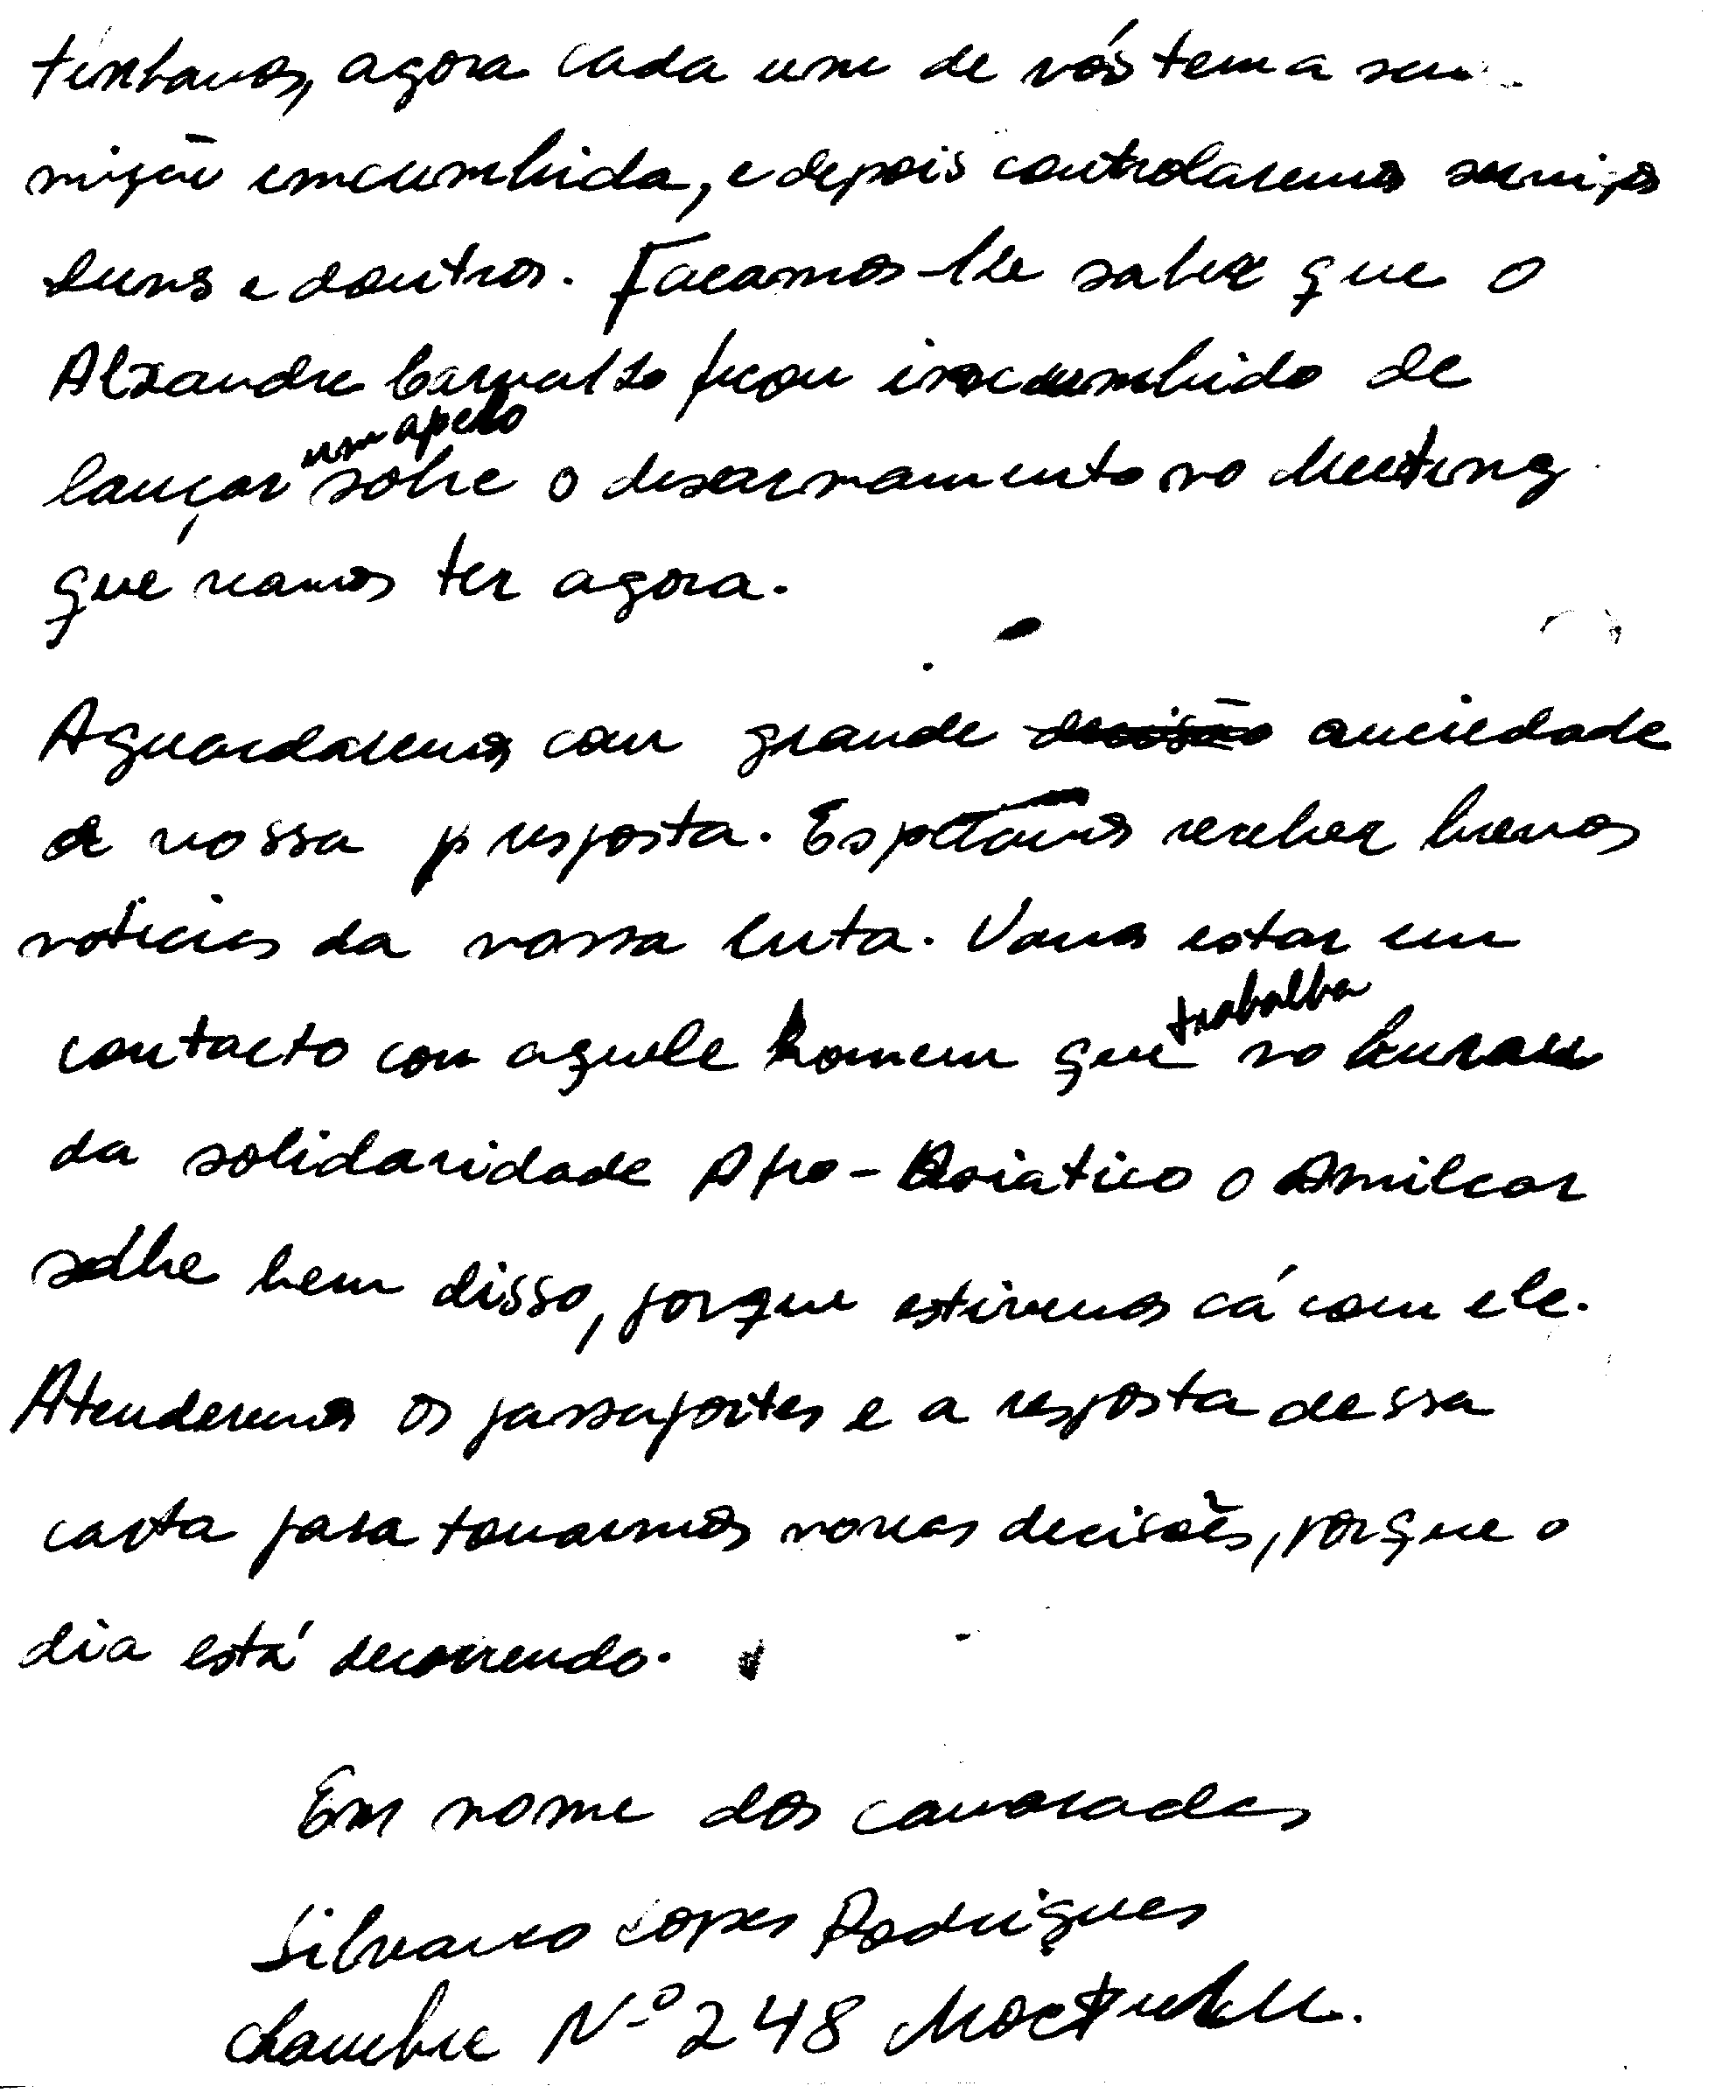 tinhamos, agora cada um de nós tem a sua
mição emcumbida, e depois controlaremos serviços
duns e doutros. Façamos-lhe saber que o
Alxandre Carvalho ficou incumbido de
lançar um apelo sobre o desarmamento no Meeting
que vamos ter agora.
Aguardaremos com grande decisão anciedade
a vossa resposta. Esperamos receber breves
noticias da vossa luta. Vamos estar em
contacto com aquele homem que trabalha no bureau
da solidaridade Afro-Asiatico o Amilcar
sabe bem disso, porque estivemos cá com ele.
Atenderemos os passaportes e a resposta dessa
carta para tomarmos novas decisões, porque o
dia está decorrendo.
Em nome dos camaradas
Silvano Lopes Rodrigues
Chambre Nº 248